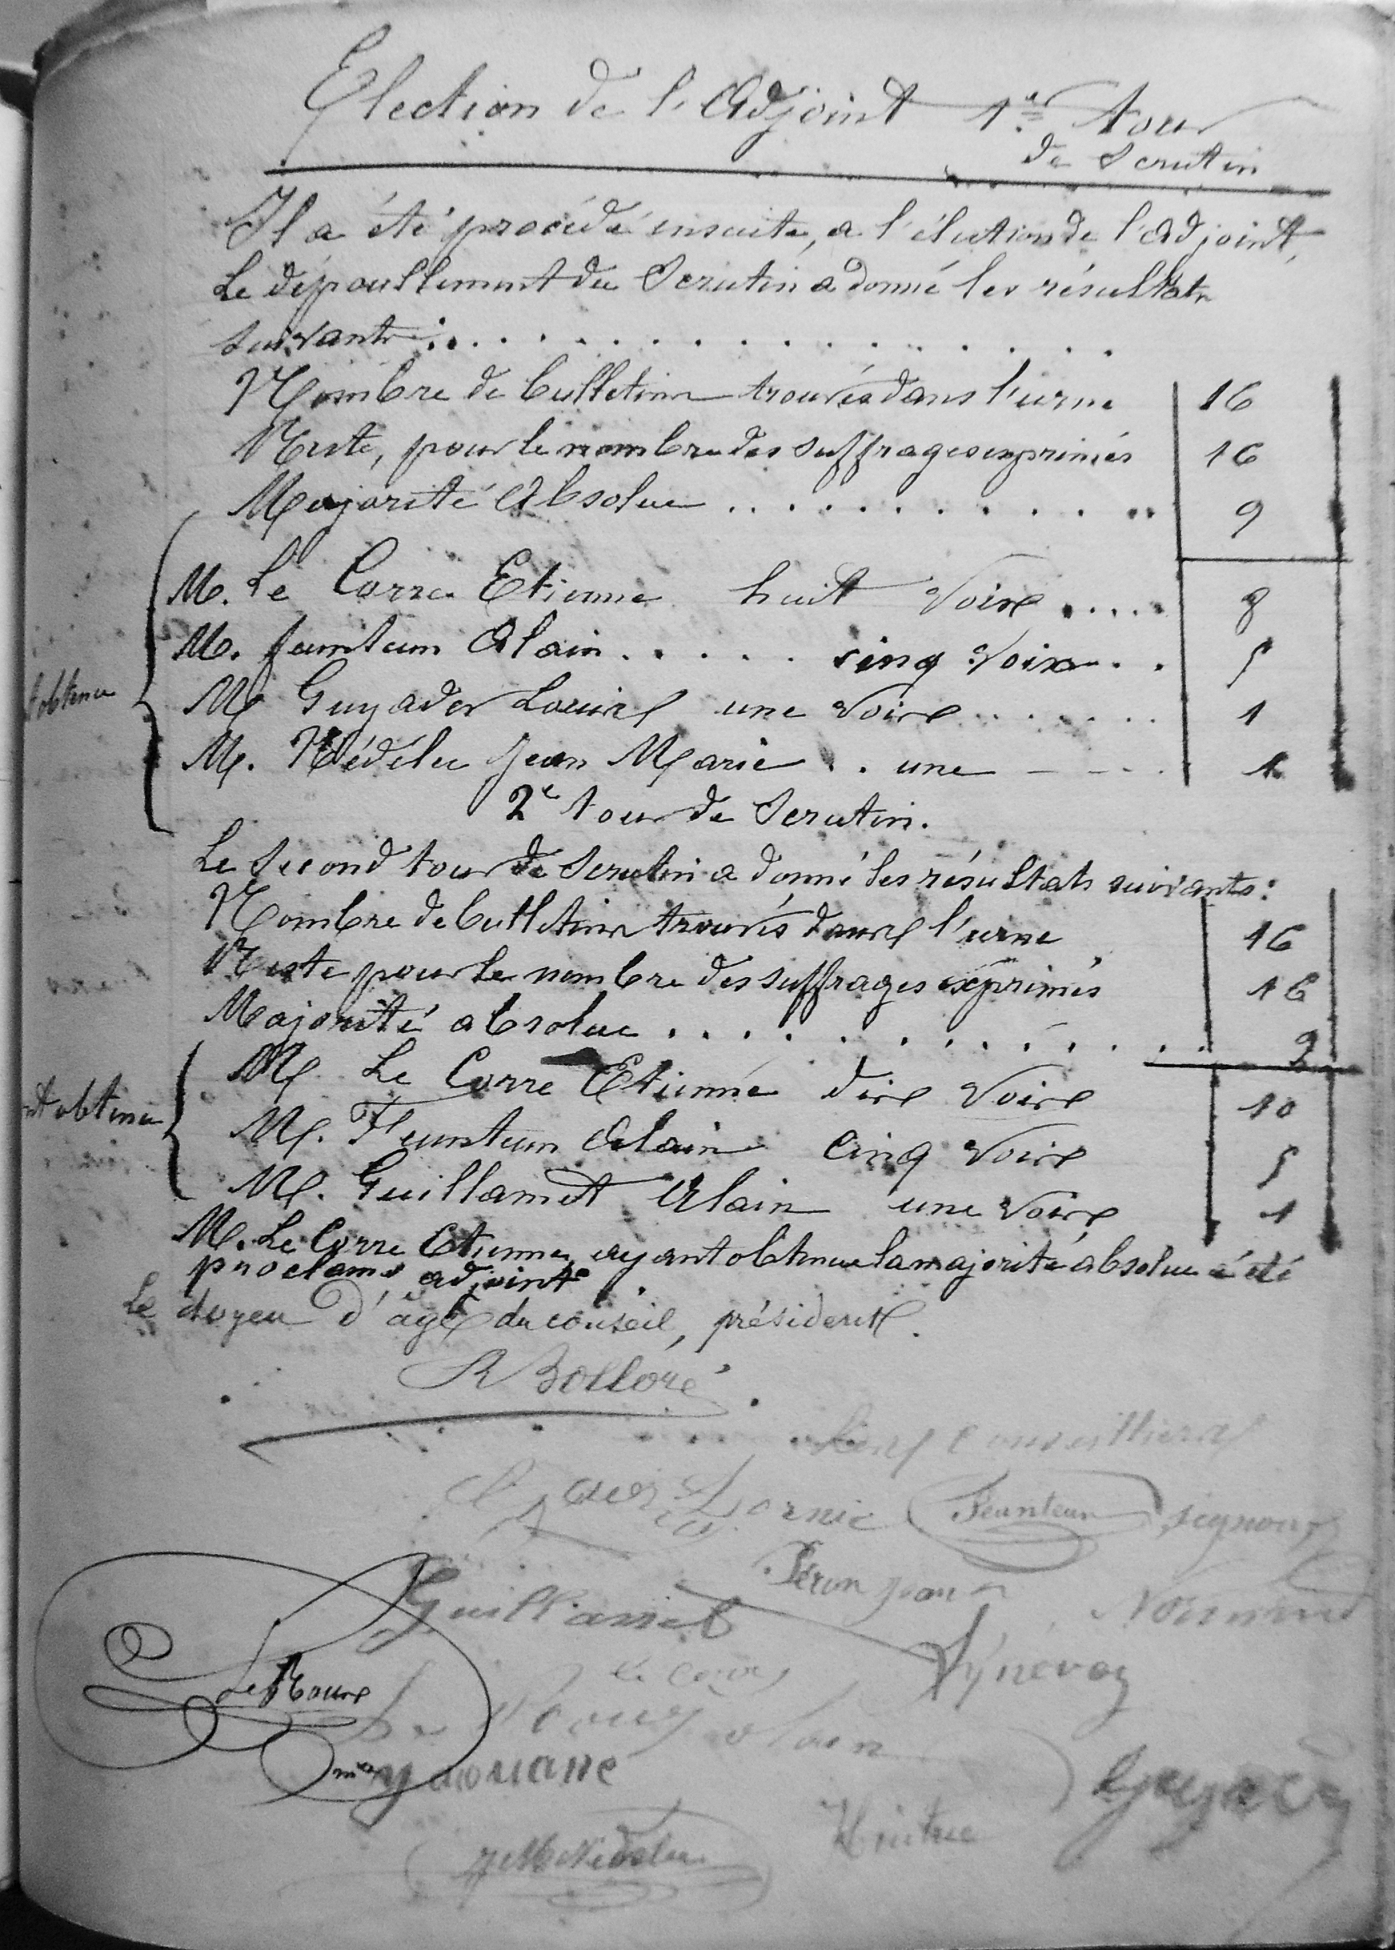 Election de l'Adjoint 1er tour
de Scrutin
Il a été procédé ensuite, a l'élection de l'Adjoint,
Le dépoullement du Scrutin a donné les résultats
suivants : . . . . . . . . . . . . . . .
Nombre de bulletins trouvés dans l'urne 16
Reste, pour le nombre des suffrages exprimés 16
Majorité Absolue . . . . . . . . . . . 9
M. Le Corre Etienne huit voix . . . . 8
M. Feunteun Alain . . . . . cinq voix . . 5
t obtenu
M Guyader Louis une voix . . . . . . 1
M. Nédélec Jean Marie . . une - - - . 1
2e tour de Scrutin.
Le Second tour de Scrutin a donné les résultats suivants :
Nombre de bulletins trouvés dans l'urne 16
Reste pour le nombre des suffrages exprimés 16
Majorité absolue . . . . . . . . . . . . 9
M Le Corre Etienne dix voix 10
nt obtenu
M. Feunteun Alain cinq voix 5
M. Guillamet Alain une voix 1
M. Le Corre Etienne, ayant obtenu la majorité absolue a été
proclamé adjoint.
Le doyen d'âge du conseil, président.
R Bolloré
Les Conseillers
Lornic Feunteun Seznec
Guillamet Peron Jean Normand
Le Roux Le Corre Synévez
Le Roux Alain
Yaouanc Guyader
JM Nédélec